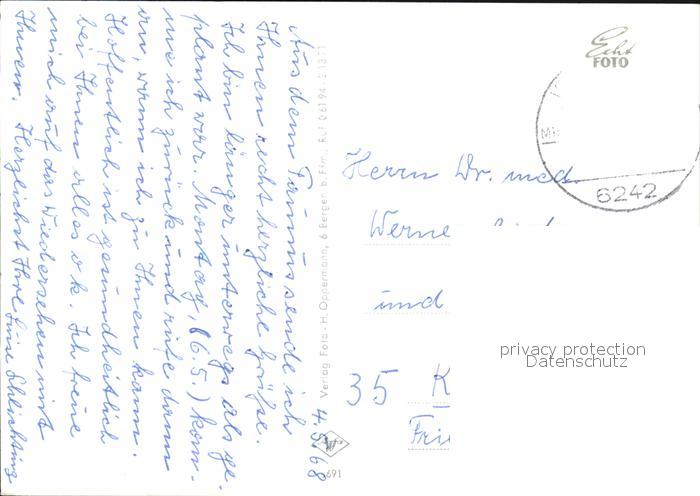 Aus dem Taunus sende ich
Ihnen recht herzliche Grüße.
Ich bin länger unterwegs als ge-
plant war. Montag, (6.5.) kom-
me ich zurück und rufe dann
an, wann ich zu Ihnen kann.
Hoffentlich ist gesundheitlich
bei Ihnen alles o.k. Ich freue
mich auf das Wiedersehen mit
Ihnen. Herzlichst Ihre Luise Schlichting
4.5.68
Verlag Foto - H. Oppermann, 6 Bergen b. Ffm., Ruf 06194-21371
691
Echt
FOTO
6242
Herrn Dr. med.
Werne
und
35 K
Frie
privacy protection
Datenschutz